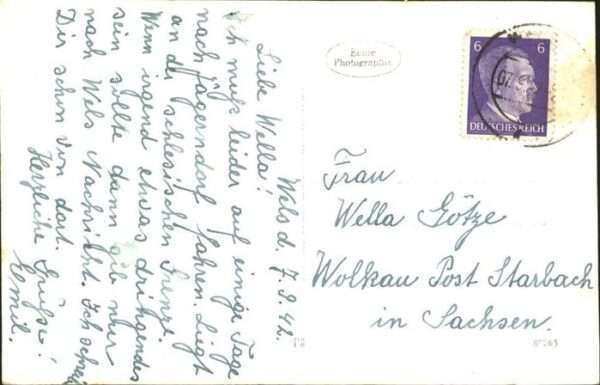 Wels d. 7.8.42.
Liebe Wella!
Ich muß leider auf einige Tage
nach Jägerndorf fahren. Liegt
an der schlesischen Grenze.
Wenn irgend etwas dringendes
sein sollte dann gib nur
nach Wels Nachricht. Ich schreib
Dir schon von dort.
Herzliche Grüße!
Emil.
Echte
Photographie
6 6
DEUTSCHES REICH
Frau
Wella Götze
Wolkau Post Starbach
in Sachsen.